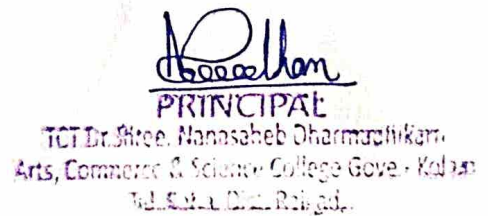 PRINCIPAL
TCT Dr. Shree. Nanasaheb Dharmadhikari
Arts, Commerce & Science College Gove - Kolad
Tal. Dist. Raigad.